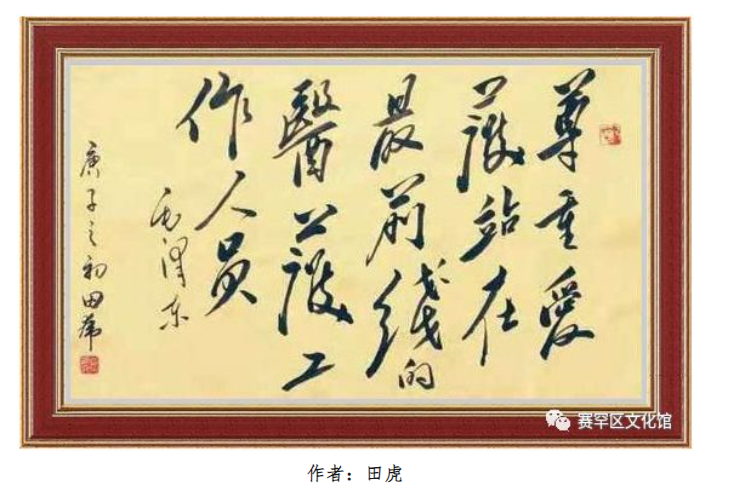 尊重爱
護站在
最前线的
醫護工
作人员
毛泽东
庚子之初田虎
赛罕区文化馆
作者：田虎